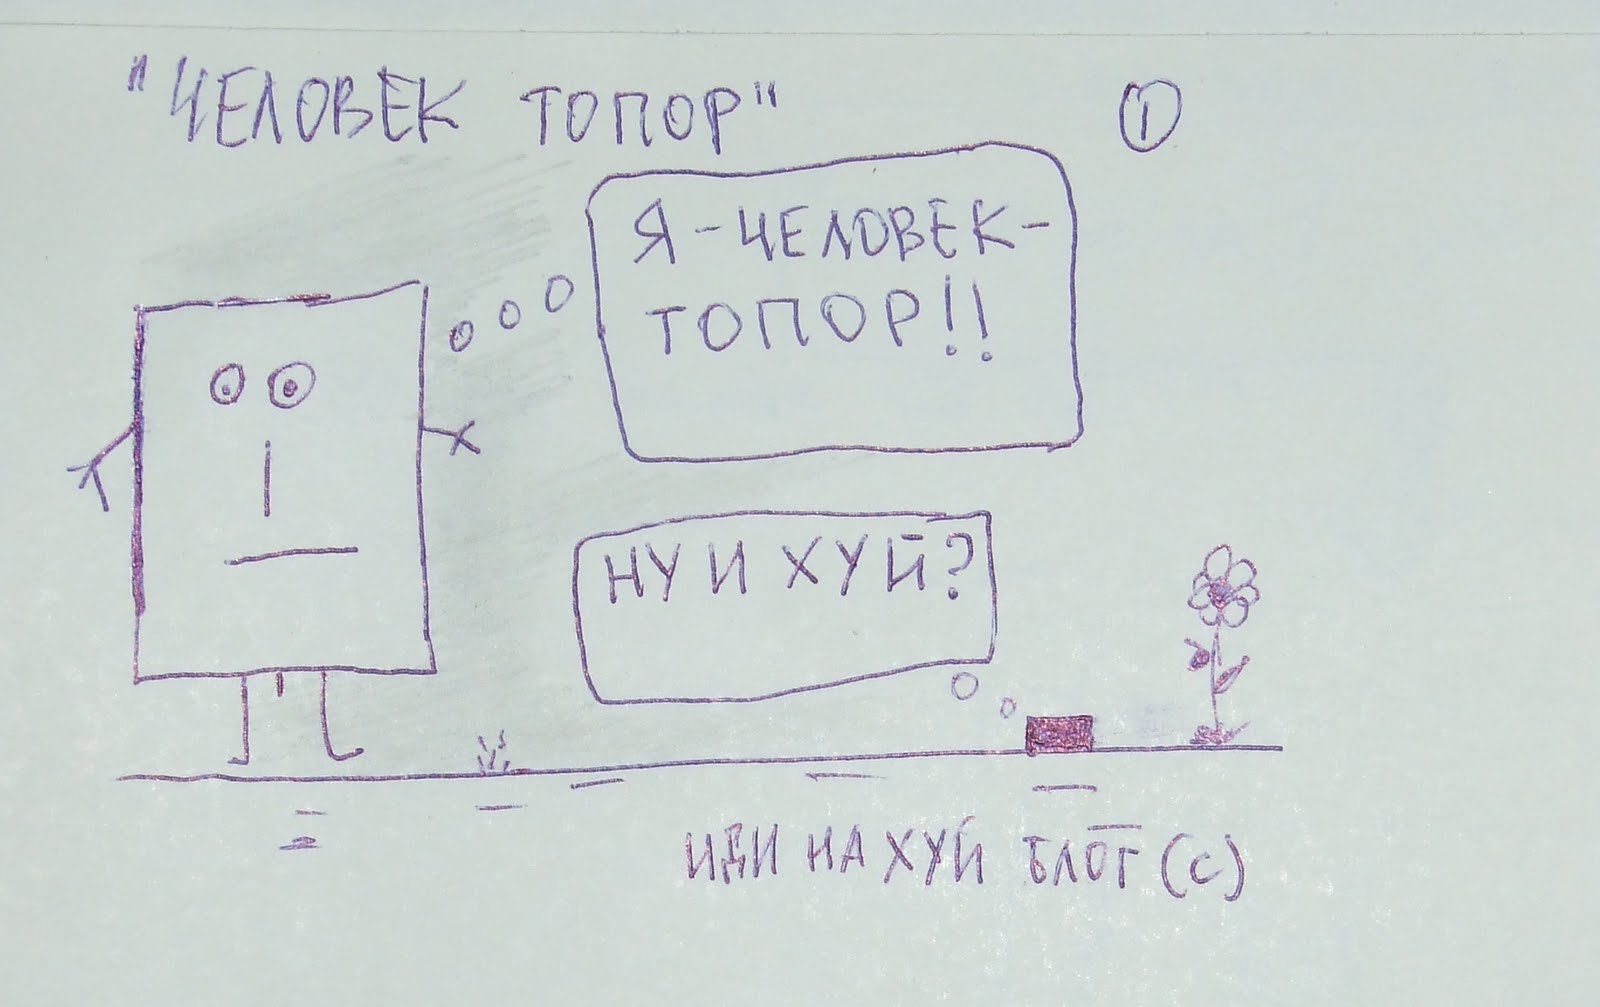 "ЧЕЛОВЕК ТОПОР"
①
Я - ЧЕЛОВЕК-
ТОПОР!!
НУ И ХУЙ?
ИДИ НА ХУЙ БЛОГ (С)